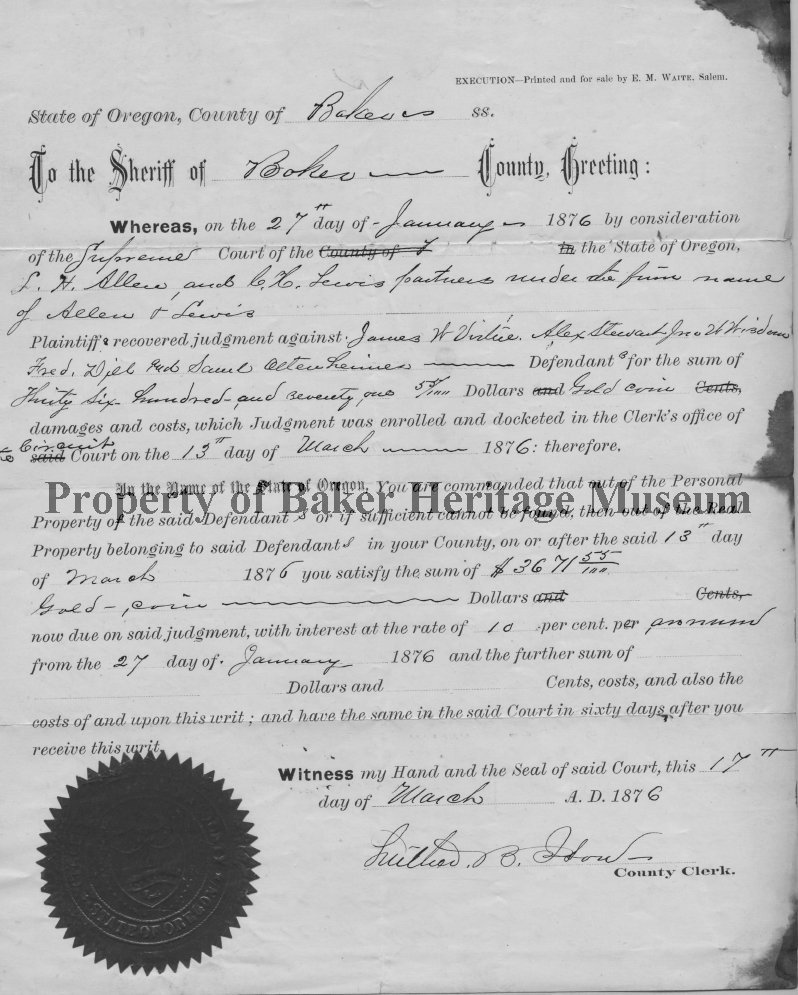 EXECUTION—Printed and for sale by E. M. WAITE, Salem.
State of Oregon, County of Baker ss.
To the Sheriff of Baker County, Greeting:
Whereas, on the 27th day of January 1876 by consideration
of the Supreme Court of the County of in the State of Oregon,
L. H. Allen, and C. H. Lewis partners under the firm name
of Allen & Lewis
Plaintiffs recovered judgment against James W Virtue. Alex Stewart Jno W Wisdom
Fred. Dill and Saml Ottenheimer Defendants for the sum of
Thirty Six hundred and seventy one 55/100 Dollars and Gold coin Cents,
damages and costs, which Judgment was enrolled and docketed in the Clerk's office of
Circuit
said Court on the 13th day of March 1876: therefore,
In the Name of the State of Oregon, You are commanded that out of the Personal
Property of Baker Heritage Museum
Property of the said Defendants or if sufficient cannot be found, then out of the Real
Property belonging to said Defendants in your County, on or after the said 13th day
of March 1876 you satisfy the sum of $3671 55/100
Gold coin Dollars and Cents,
now due on said judgment, with interest at the rate of 10 per cent. per annum
from the 27 day of January 1876 and the further sum of
Dollars and Cents, costs, and also the
costs of and upon this writ; and have the same in the said Court in sixty days after you
receive this writ.
Witness my Hand and the Seal of said Court, this 17th
day of March A. D. 1876
Luther B. Ison
County Clerk.
STATE OF OREGON